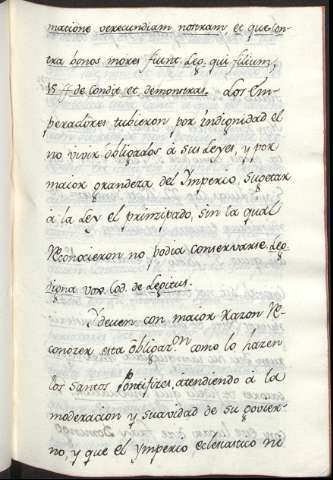 matione verecundiam nostram et que con-
tra bonos mores fiunt. Leg. qui filium,
15 ff de Condit et demonstrat. Los Em-
peradores tubieron por indignidad el
no vivir obligados a sus Leyes, y por
maior grandeza del Imperio, sugetar
à la Ley el prinzipado, sin la qual
Reconocieron no podia conservarse Leg
digna vox Cod. de Legibus.
Y deuen con maior razon Re-
conozer esta obligazon como lo hazen
los Santos Pontifizes, atendiendo á la
moderacion y suavidad de su govier-
no, y que el ymperio eclesiastico ni